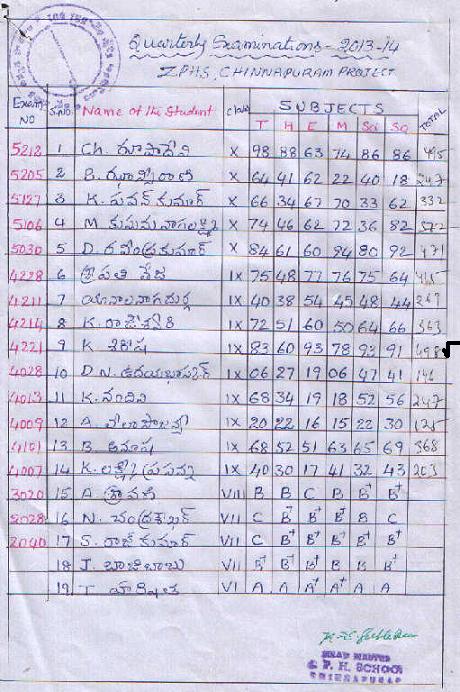 Quarterly Examinations - 2013-14
ZPHS, CHINNAPURAM PROJECT
Exam NO S.No. Name of the Student class SUBJECTS TOTAL
T H E M Sci So
5212 1 Ch. రూపాదేవి X 98 88 63 74 86 86
5205 2 B. X 64 41 62 22 40 18 247
5127 3 K. పవన్ కుమార్ X 66 34 67 70 33 62 332
5106 4 M కుసుమ నాగలక్ష్మి X 74 46 62 72 36 82
5030 5 D. రవీంద్రకుమార్ X 84 61 60 94 80 92 471
4228 6 IX 75 48 77 76 75 64 415
4211 7 IX 40 38 54 45 48 44
4214 8 K. రాజేశ్వరి IX 72 51 60 50 64 66 363
4221 9 K శిరీష IX 83 60 93 78 93 91 498
4028 10 D.N. ఉదయభాస్కర్ IX 06 27 19 06 47 41 146
4013 11 K. నందిని IX 68 34 19 18 52 56 247
4009 12 A. IX 20 22 16 15 22 30 125
4101 13 B IX 68 52 51 63 65 69 368
4007 14 K. లక్ష్మీ ప్రసన్న IX 40 30 17 41 32 43 203
3020 15 A శ్రావణి VIII B B C B B+ B+
2028 16 N. చంద్రశేఖర్ VII C B+ B+ B+ B C
2040 17 S. రాజ్ కుమార్ VII C B+ B+ B B+ B+
18 J. బాజిబాబు VII B+ B+ B+ B B B+
19 T VI A A A+ A+ A A
HEAD MASTER
P. H. SCHOOL
CHINNAPURAM